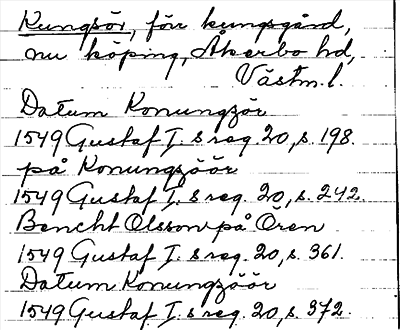 Kungsör, förr kungsgård,
nu köping, Åkerbo hd,
Västm. l.
Datum Konungzör
1549 Gustaf I. s reg. 20, s. 198.
på Konungzöör
1549 Gustaf I. s reg. 20, s. 242.
Bencht Olsson på Ören
1549 Gustaf I. s reg. 20, s. 361.
Datum Konungzöör
1549 Gustaf I. s reg. 20, s. 372.